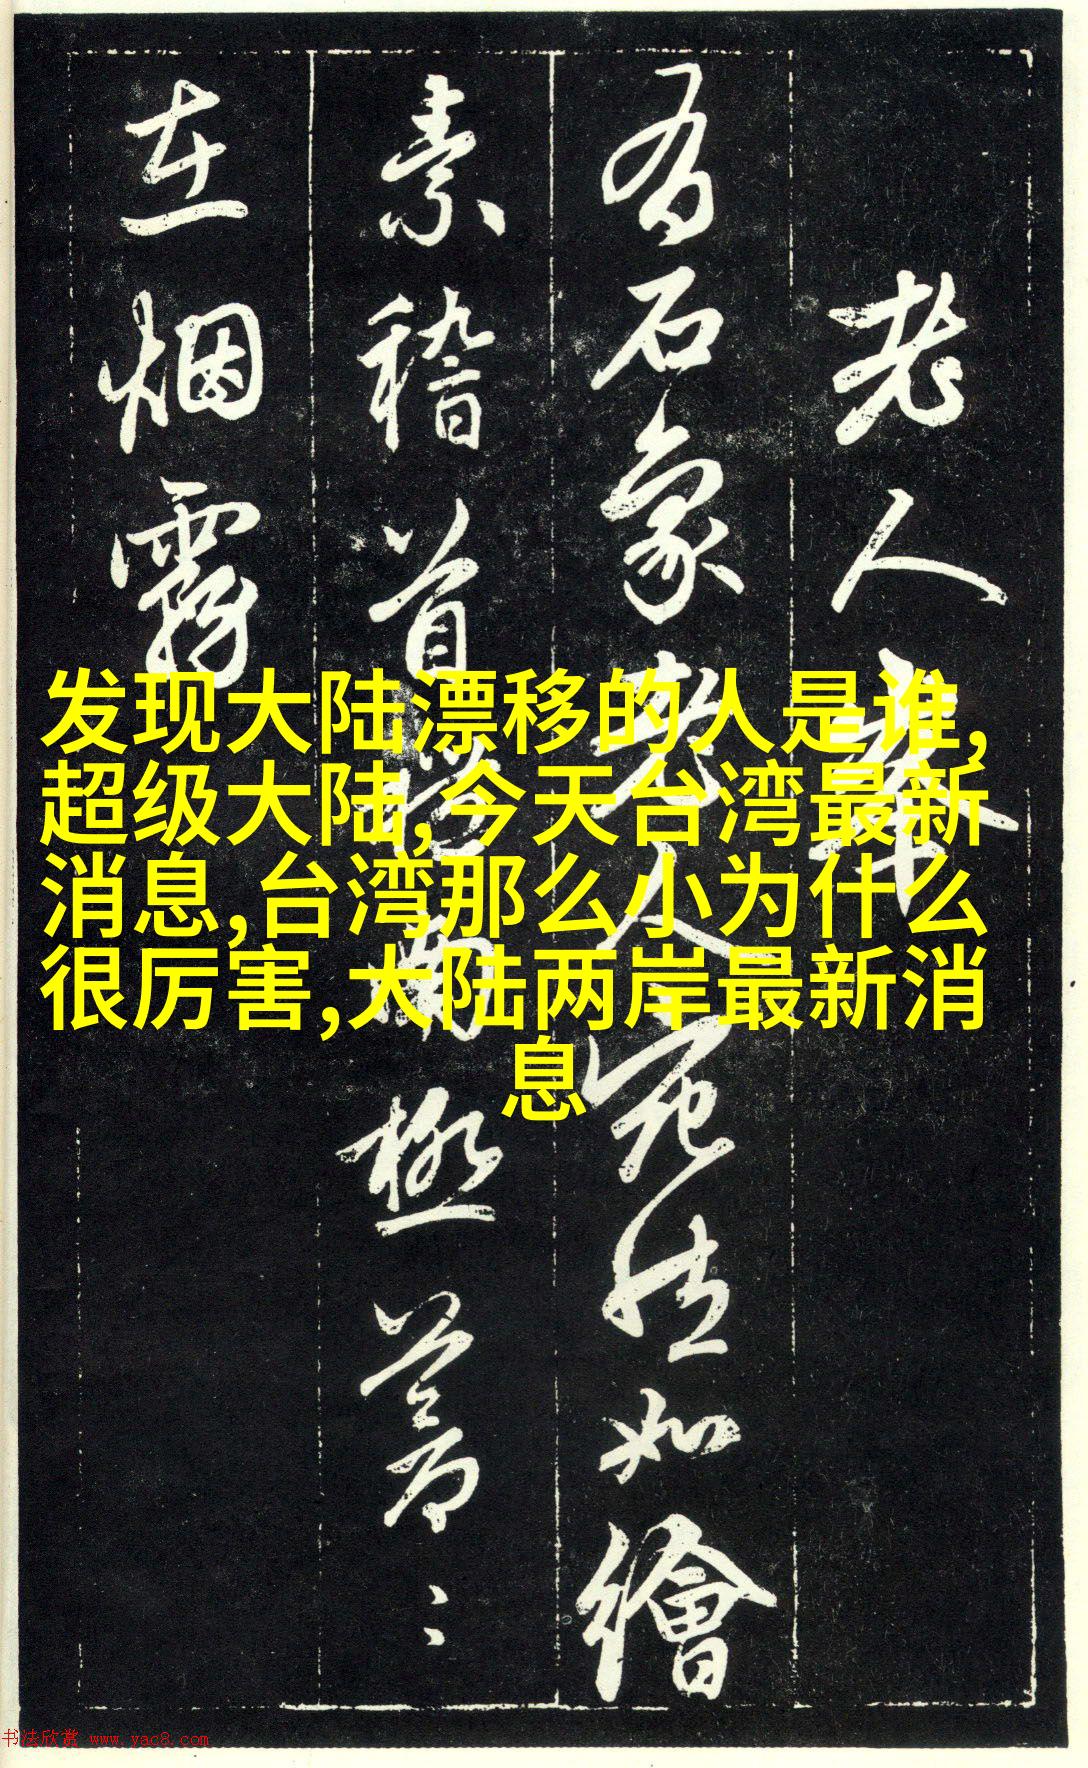 老人峯
有石象老人宛然如繪
素稽首□□極望〻
在烟霧
发现大陆漂移的人是谁,
超级大陆,今天台湾最新
消息,台湾那么小为什么
很厉害,大陆两岸最新消
息
书法欣赏 www.yac8.com